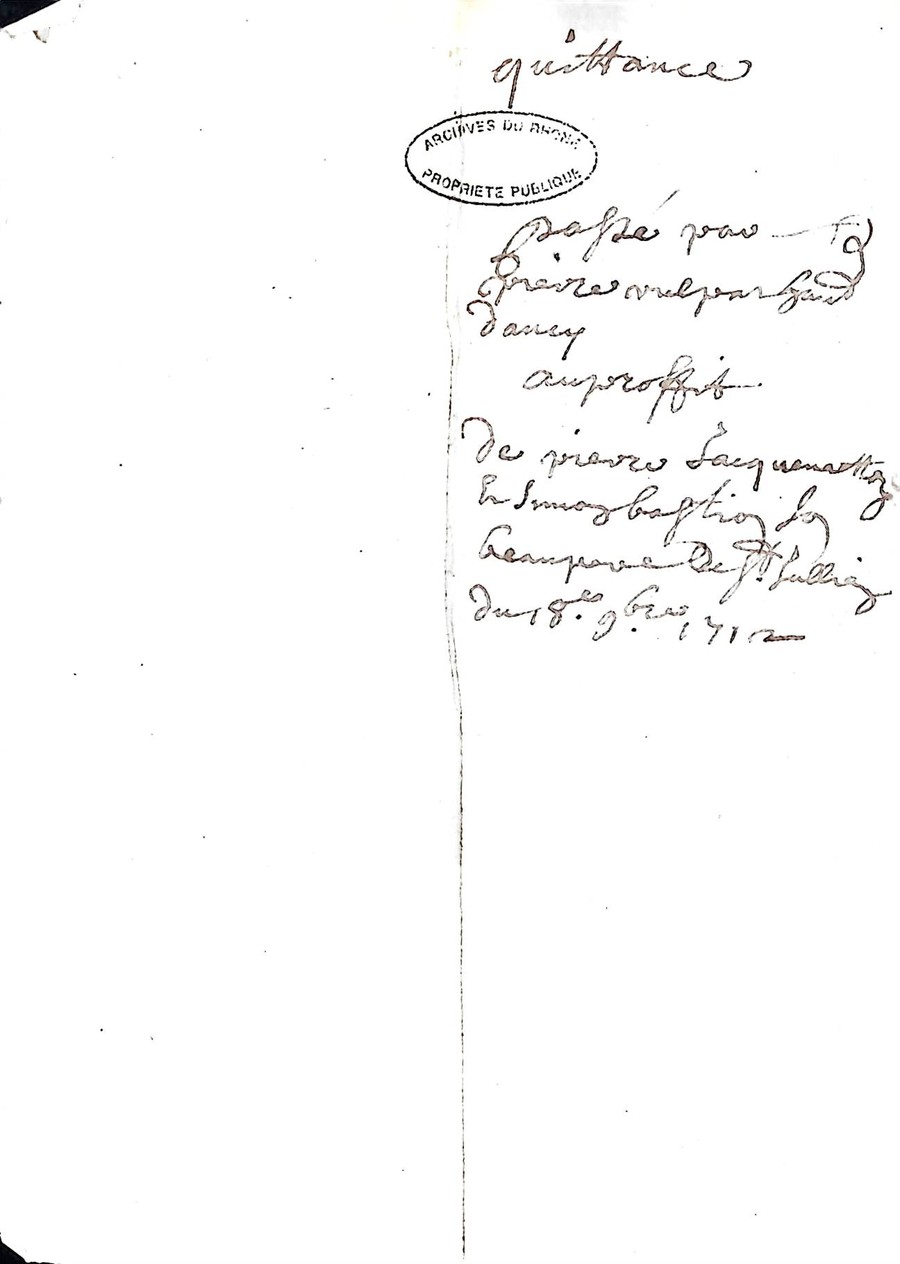 quittance
ARCHIVES DU RHONE
PROPRIETE PUBLIQUE
passé par
pierre
dancy
au proffit
De pierre Jacquemetton
Et bastion son
beaupere De St. Jullien
du 18.es 9.bre 1712